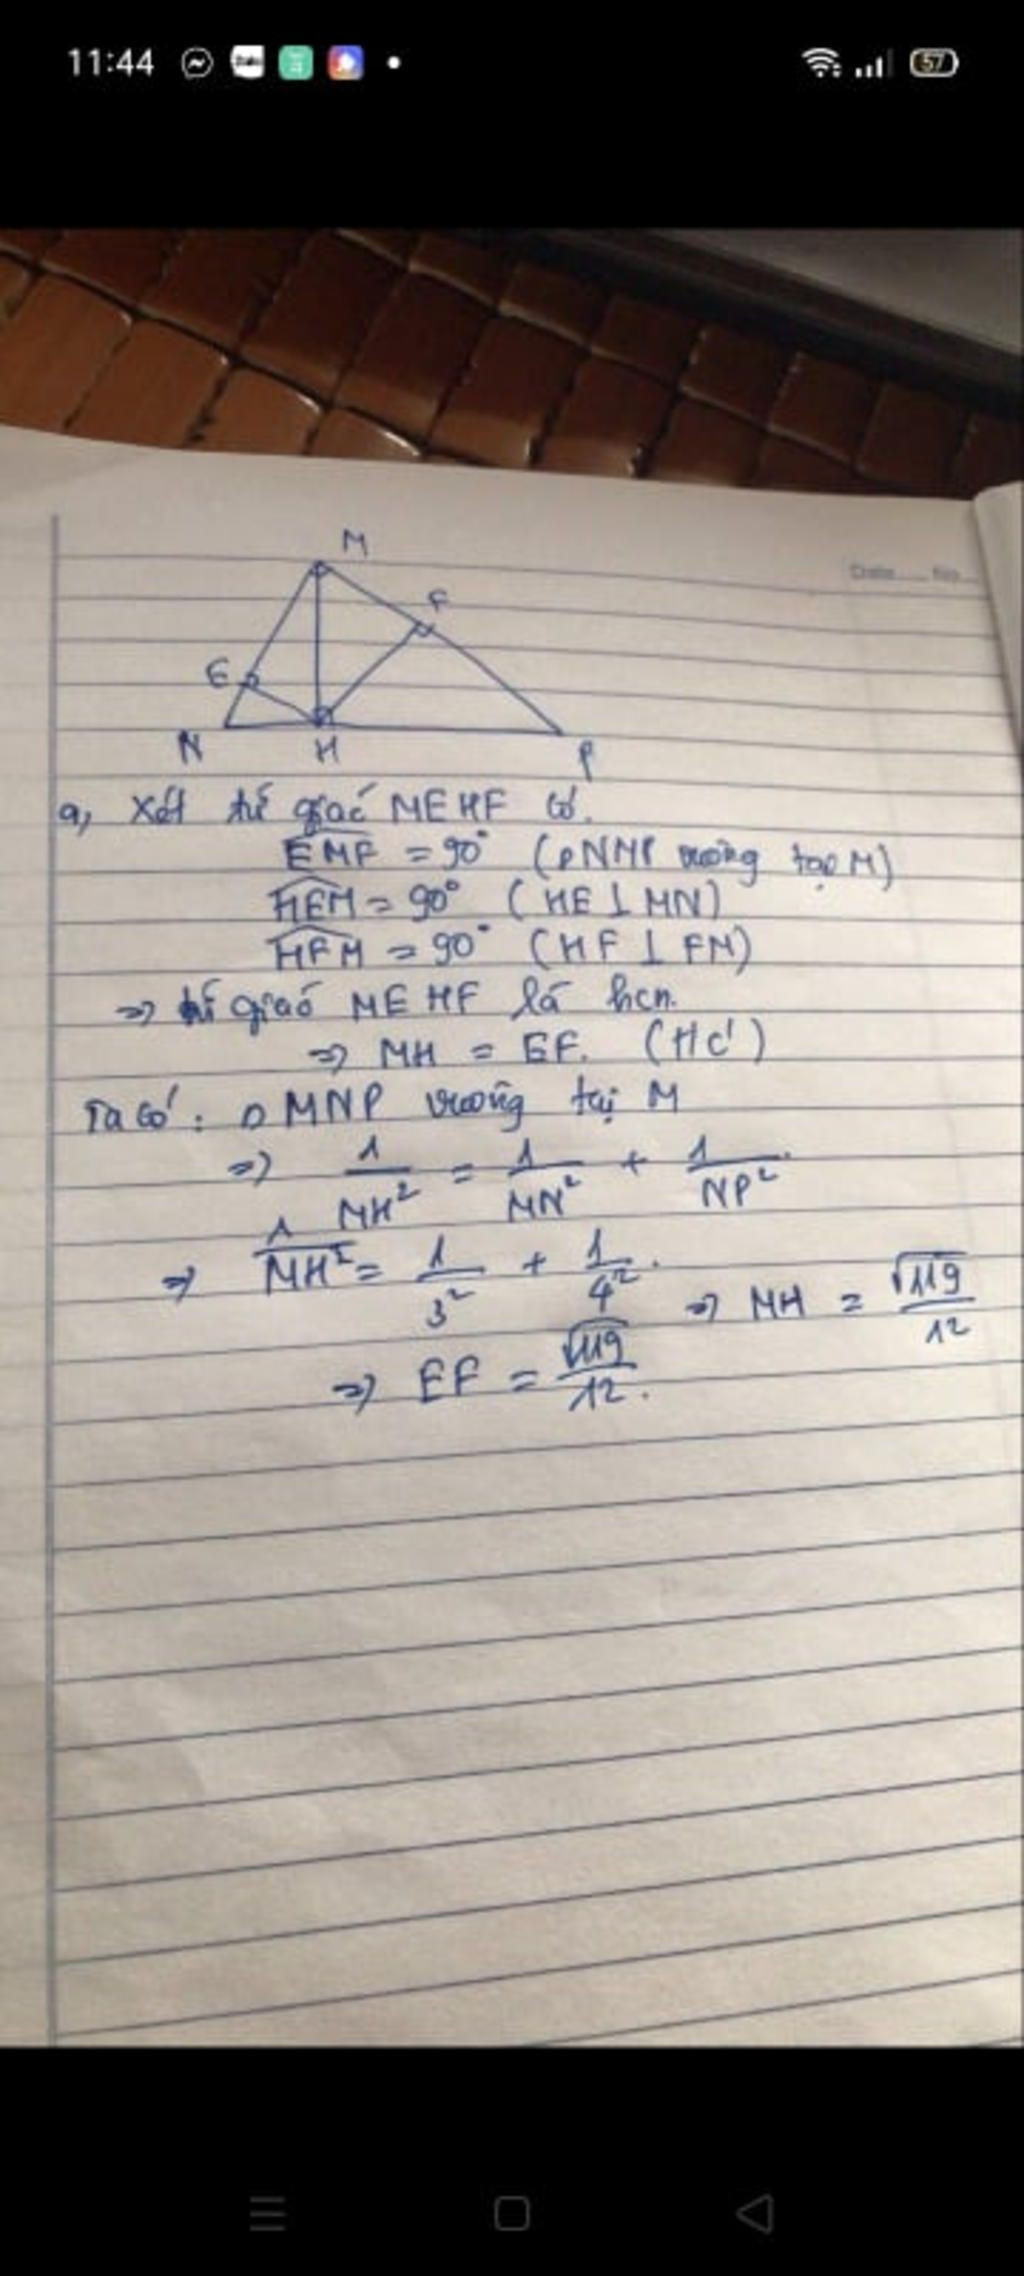 11:44
57
Date No
M
F
E
N H P
a, Xét tứ giác MEHF có.
EMF = 90° (ΔNMP vuông tại M)
HEM = 90° (HE ⊥ MN)
HFM = 90° (HF ⊥ FM)
=> tứ giác MEHF là hcn.
=> MH = EF. (HC')
Ta có: Δ MNP vuông tại M
=> 1/MH² = 1/MN² + 1/NP².
=> 1/MH² = 1/3² + 1/4². => MH = √119/12
=> EF = √119/12.